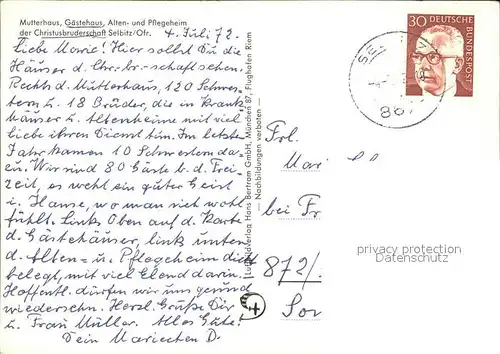 Mutterhaus, Gästehaus, Alten- und Pflegeheim
der Christusbruderschaft Selbitz/Ofr.
4. Juli 72.
Liebe Marie! Hier sollst Du die
Häuser d. Chr.-br.-schaft sehen.
Rechts d. Mutterhaus, 120 Schwes-
tern u. 18 Brüder, die in Krank
häuser u. Altenheime mit viel
Liebe ihren Dienst tun. Im letzten
Jahr kamen 10 Schwestern da-
zu. Wir sind 80 Gäste b. d. Frei-
zeit, es weht ein guter Geist
i. Hause, wo man sich wohl
fühlt. Links Oben auf d. Karte
d. Gästehäuser, link unten
d. Alten- u. Pflegeheim dicht
belegt, mit viel Elend darin.
Hoffentl. dürfen wir uns gesund
wiedersehn. Herzl. Grüße Dir
u. Frau Müller. Alles Gute!
Dein Mariechen D.
Luftbildverlag Hans Bertram GmbH, München 87, Flughafen Riem
— Nachbildungen verboten —
30
DEUTSCHE BUNDESPOST
SE
867
Frl.
Mar
bei Fr
872/.
Sor
privacy protection
Datenschutz